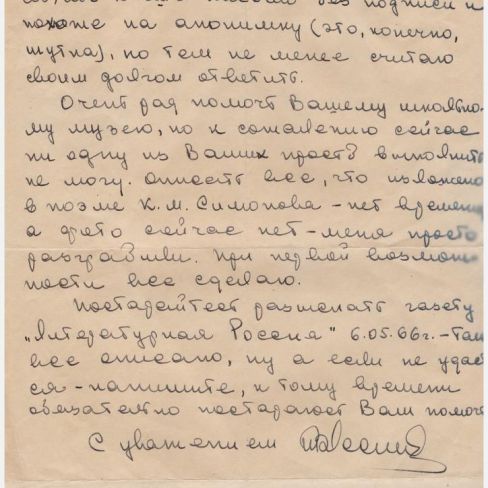 без подписи и
похоже на анонимку (это, конечно,
шутка), но тем не менее считаю
своим долгом ответить.
Очень рад помочь Вашему школьно-
му музею, но к сожалению сейчас
ни одну из Ваших просьб выполнить
не могу. Описать все, что изложено
в поэме К. М. Симонова - нет времени,
а фото сейчас нет - меня просто
разграбили. При первой возмож-
ности все сделаю.
Постарайтесь разыскать газету
„Литературная Россия" 6.05.66г. - Там
все описано, ну а если не удаст
ся - напишите, к тому времени
обязательно постараюсь Вам помочь
С уважением